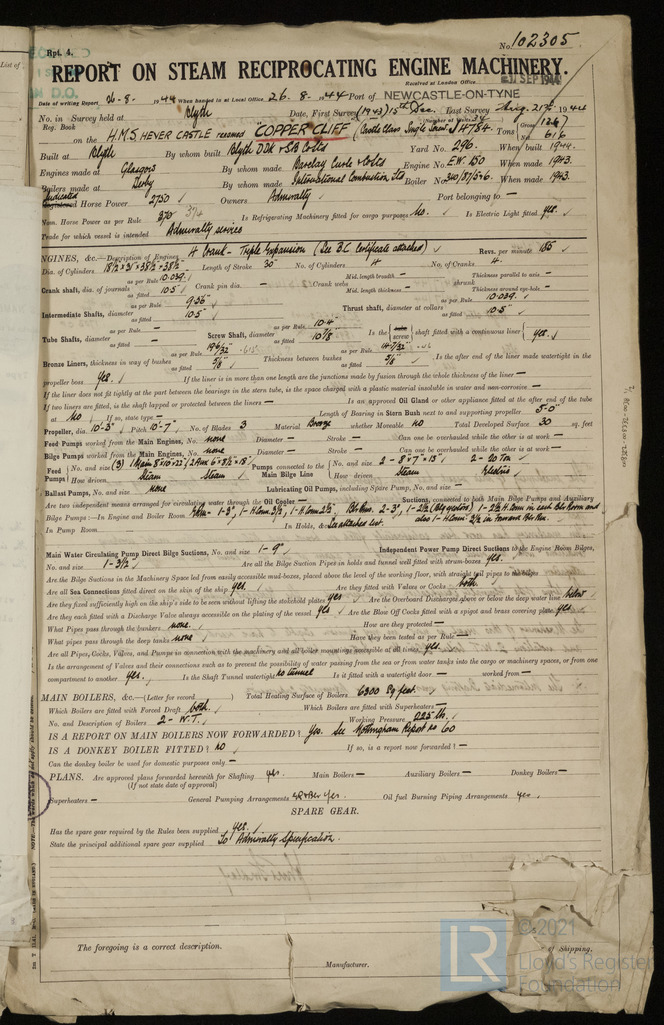 Rpt. 4.
No. 102305
REPORT ON STEAM RECIPROCATING ENGINE MACHINERY.
Received at London Office SEP 1944
Date of writing Report 26-8- 1944 When handed in at Local Office 26.8. 1944 Port of NEWCASTLE-ON-TYNE
No. in Survey held at Blyth Date, First Survey (1943) 15th Dec. Last Survey Aug. 21st 1944
Reg. Book (Number of Visits 34)
on the H.M.S. HEVER CASTLE renamed "COPPER CLIFF" (Castle Class Single Screw) J4784. Tons Gross Net 616
Built at Blyth By whom built Blyth DDK & SB Co Ltd Yard No. 296. When built 1944.
Engines made at Glasgow By whom made Barclay Curle & Co Ltd Engine No. E.W. 150 When made 1943.
Boilers made at Derby By whom made International Combustion Ltd Boiler No. 340/87/576. When made 1943.
Indicated Horse Power 2750 Owners Admiralty Port belonging to —
Nom. Horse Power as per Rule 370 374 Is Refrigerating Machinery fitted for cargo purposes No. Is Electric Light fitted yes.
Trade for which vessel is intended Admiralty services
ENGINES, &c.—Description of Engines 4 Crank - Triple Expansion (See B.C. Certificate attached) Revs. per minute 185
Dia. of Cylinders 18½ × 31 × 38½ - 38½ Length of Stroke 30" No. of Cylinders 4 No. of Cranks 4.
Crank shaft, dia. of journals as per Rule 10.039. as fitted 10.5 Crank pin dia. — Crank webs Mid. length breadth — Mid. length thickness — shrunk Thickness parallel to axis — Thickness around eye-hole —
Intermediate Shafts, diameter as per Rule 9.56 as fitted 10.5" Thrust shaft, diameter at collars as per Rule 10.039. as fitted 10.5"
Tube Shafts, diameter as per Rule — as fitted — Screw Shaft, diameter as per Rule 10.4 as fitted 10⅞" Is the screw shaft fitted with a continuous liner yes.
Bronze Liners, thickness in way of bushes as per Rule as fitted ⅝" Thickness between bushes as per Rule as fitted ⅝" Is the after end of the liner made watertight in the
propeller boss Yes. If the liner is in more than one length are the junctions made by fusion through the whole thickness of the liner —
If the liner does not fit tightly at the part between the bearings in the stern tube, is the space charged with a plastic material insoluble in water and non-corrosive —
If two liners are fitted, is the shaft lapped or protected between the liners — Is an approved Oil Gland or other appliance fitted at the after end of the tube
No If so, state type — Length of Bearing in Stern Bush next to and supporting propeller 5'-0"
Propeller, dia. 10'-3" Pitch 10'-7" No. of Blades 3 Material Bronze whether Moveable no Total Developed Surface 30 sq. feet
Feed Pumps worked from the Main Engines, No. none Diameter — Stroke — Can one be overhauled while the other is at work —
Bilge Pumps worked from the Main Engines, No. none Diameter — Stroke — Can one be overhauled while the other is at work —
Feed Pumps No. and size (3) 1 Main 8×10×22" (2 Aux 6×8½×18") Pumps connected to the Main Bilge Line No. and size 2 - 8×7×18" 2 - 20 Ton
How driven Steam Steam How driven Steam Electric
Ballast Pumps, No. and size none Lubricating Oil Pumps, including Spare Pump, No. and size —
Are two independent means arranged for circulating water through the Oil Cooler — Suctions, connected to both Main Pumps and Auxiliary
Bilge Pumps :—In Engine and Boiler Room
In Pump Room In Holds, &c. See attached list.
Main Water Circulating Pump Direct Bilge Suctions, No. and size 1 - 9" Independent Power Pump Direct Suctions to the Engine Room Bilges,
No. and size 1 - 3½ Are all the Bilge Suction Pipes in holds and tunnel well fitted with strum-boxes yes.
Are the Bilge Suctions in the Machinery Space led from easily accessible mud-boxes, placed above the level of the working floor, with straight tail pipes to the bilges
Are all Sea Connections fitted direct on the skin of the ship yes. Are they fitted with Valves or Cocks both.
Are they fixed sufficiently high on the ship's side to be seen without lifting the stokehold plates yes Are the Overboard Discharges above or below the deep water line below
Are they each fitted with a Discharge Valve always accessible on the plating of the vessel yes Are the Blow Off Cocks fitted with a spigot and brass covering plate yes.
What Pipes pass through the bunkers none. How are they protected —
What pipes pass through the deep tanks none Have they been tested as per Rule —
Are all Pipes, Cocks, Valves, and Pumps in connection with the machinery and all boiler mountings accessible at all times yes.
Is the arrangement of Valves and their connections such as to prevent the possibility of water passing from the sea or from water tanks into the cargo or machinery spaces, or from one
compartment to another yes. Is the Shaft Tunnel watertight no tunnel Is it fitted with a watertight door — worked from —
MAIN BOILERS, &c.—(Letter for record ) Total Heating Surface of Boilers 6300 sq feet.
Which Boilers are fitted with Forced Draft both. Which Boilers are fitted with Superheaters —
No. and Description of Boilers 2 - W.T. Working Pressure 225 lb.
IS A REPORT ON MAIN BOILERS NOW FORWARDED? Yes. See Nottingham Report no 60
IS A DONKEY BOILER FITTED? no If so, is a report now forwarded? —
Can the donkey boiler be used for domestic purposes only —
PLANS. Are approved plans forwarded herewith for Shafting yes. Main Boilers — Auxiliary Boilers — Donkey Boilers —
(If not state date of approval)
Superheaters — General Pumping Arrangements yes Oil fuel Burning Piping Arrangements yes
SPARE GEAR.
Has the spare gear required by the Rules been supplied yes.
State the principal additional spare gear supplied To Admiralty Specification.
The foregoing is a correct description.
Manufacturer.
LR
© 2021
Lloyd's Register
Foundation